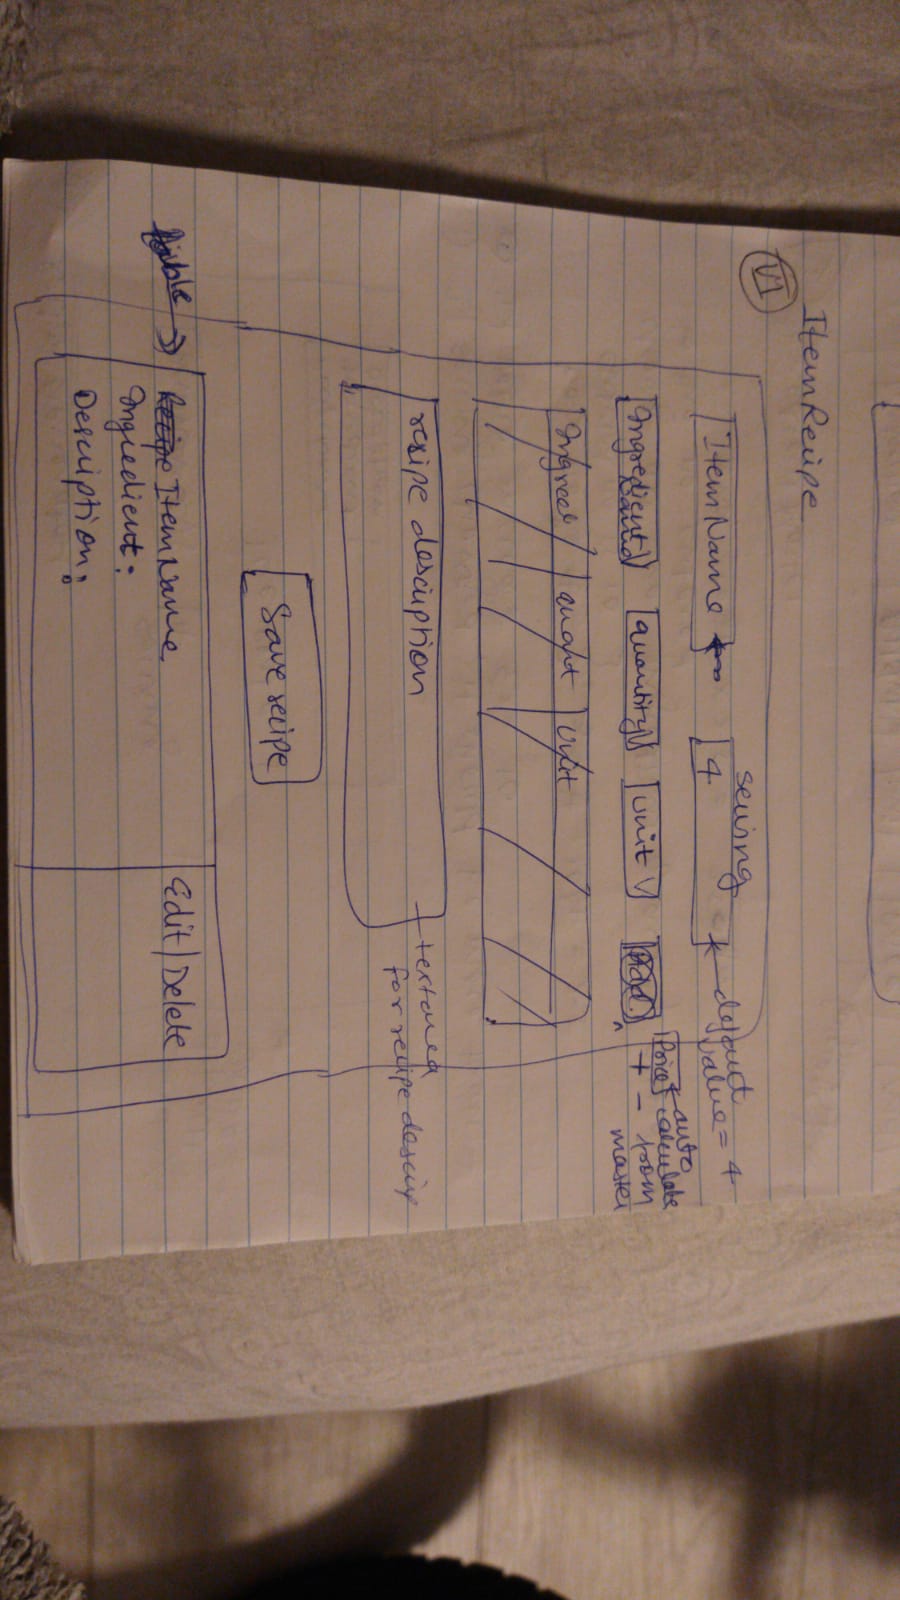 Item Recipe
VI
serving
Item Name 4 ← default value = 4
Ingredient quantity unit Price ← auto calculate from master
+ -
Ingred quant unit
recipe description
← textarea for recipe descrip
Save recipe
Item Name Edit/Delete
Ingredient:
Description: